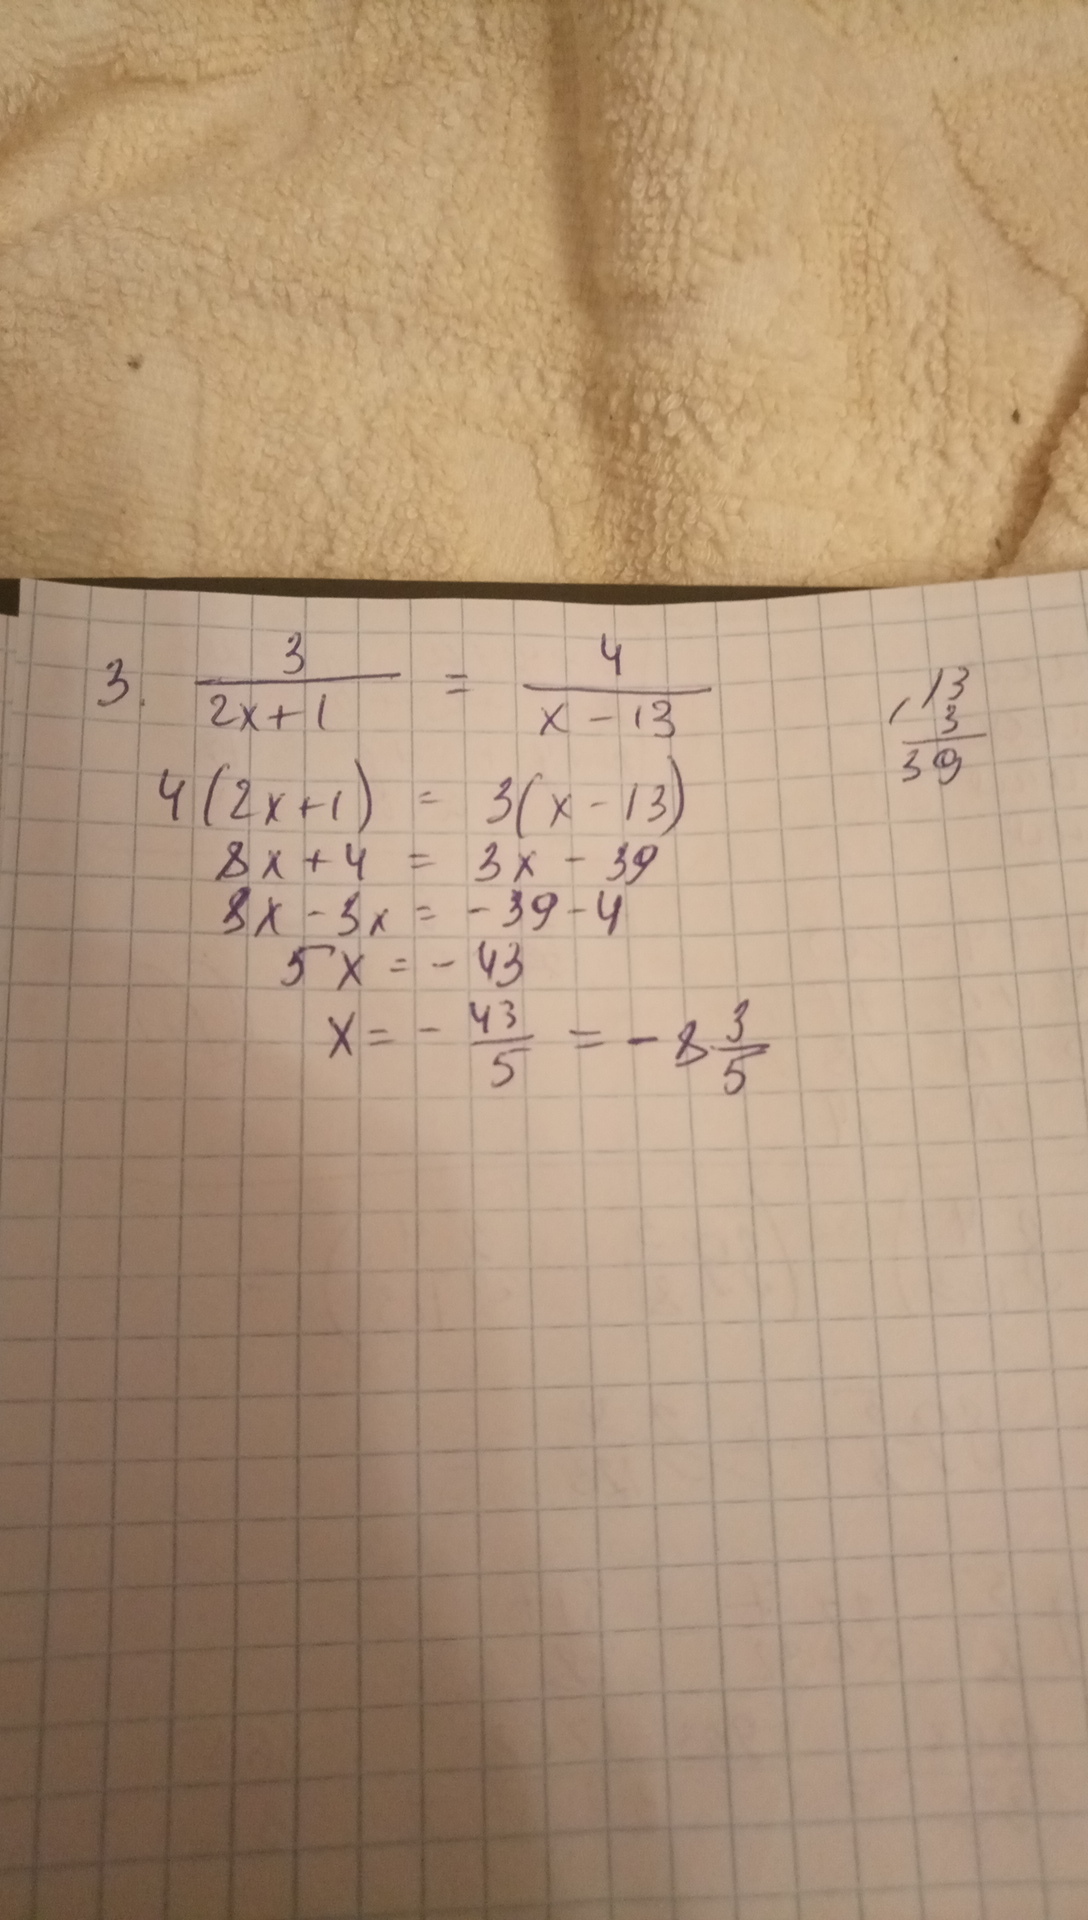 3. 3/(2x+1) = 4/(x-13)
13
3
39
4(2x+1) = 3(x-13)
8x+4 = 3x-39
8x-3x = -39-4
5x = -43
x = - 43/5 = -8 3/5